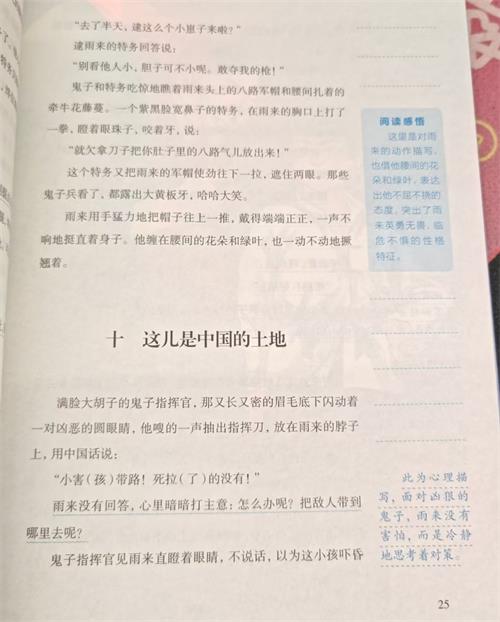 “去了半天，逮这么个小崽子来啦？”
逮雨来的特务回答说：
“别看他人小，胆子可不小呢。敢夺我的枪！”
鬼子和特务吃惊地瞧着雨来头上的八路军帽和腰间扎着的
牵牛花藤蔓。一个紫黑脸宽鼻子的特务，在雨来的胸口上打了
一拳，瞪着眼珠子，咬着牙，说：
“就欠拿刀子把你肚子里的八路气儿放出来！”
这个特务又把雨来的军帽使劲往下一拉，遮住两眼。那些
鬼子兵看了，都露出大黄板牙，哈哈大笑。
雨来用手猛力地把帽子往上一推，戴得端端正正，一声不
响地挺直着身子。他缠在腰间的花朵和绿叶，也一动不动地撅
翘着。
阅读感悟
这里是对雨
来的动作描写，
也借他腰间的花
朵和绿叶，表达
出他不屈不挠的
态度，突出了雨
来英勇无畏、临
危不惧的性格
特征。
十 这儿是中国的土地
满脸大胡子的鬼子指挥官，那又长又密的眉毛底下闪动着
一对凶恶的圆眼睛，他嗖的一声抽出指挥刀，放在雨来的脖子
上，用中国话说：
“小害（孩）带路！死拉（了）的没有！”
雨来没有回答，心里暗暗打主意：怎么办呢？把敌人带到
哪里去呢？
鬼子指挥官见雨来直瞪着眼睛，不说话，以为这小孩吓昏
此为心理描
写，面对凶狠的
鬼子，雨来没有
害怕，而是冷静
地思考着对策。
25